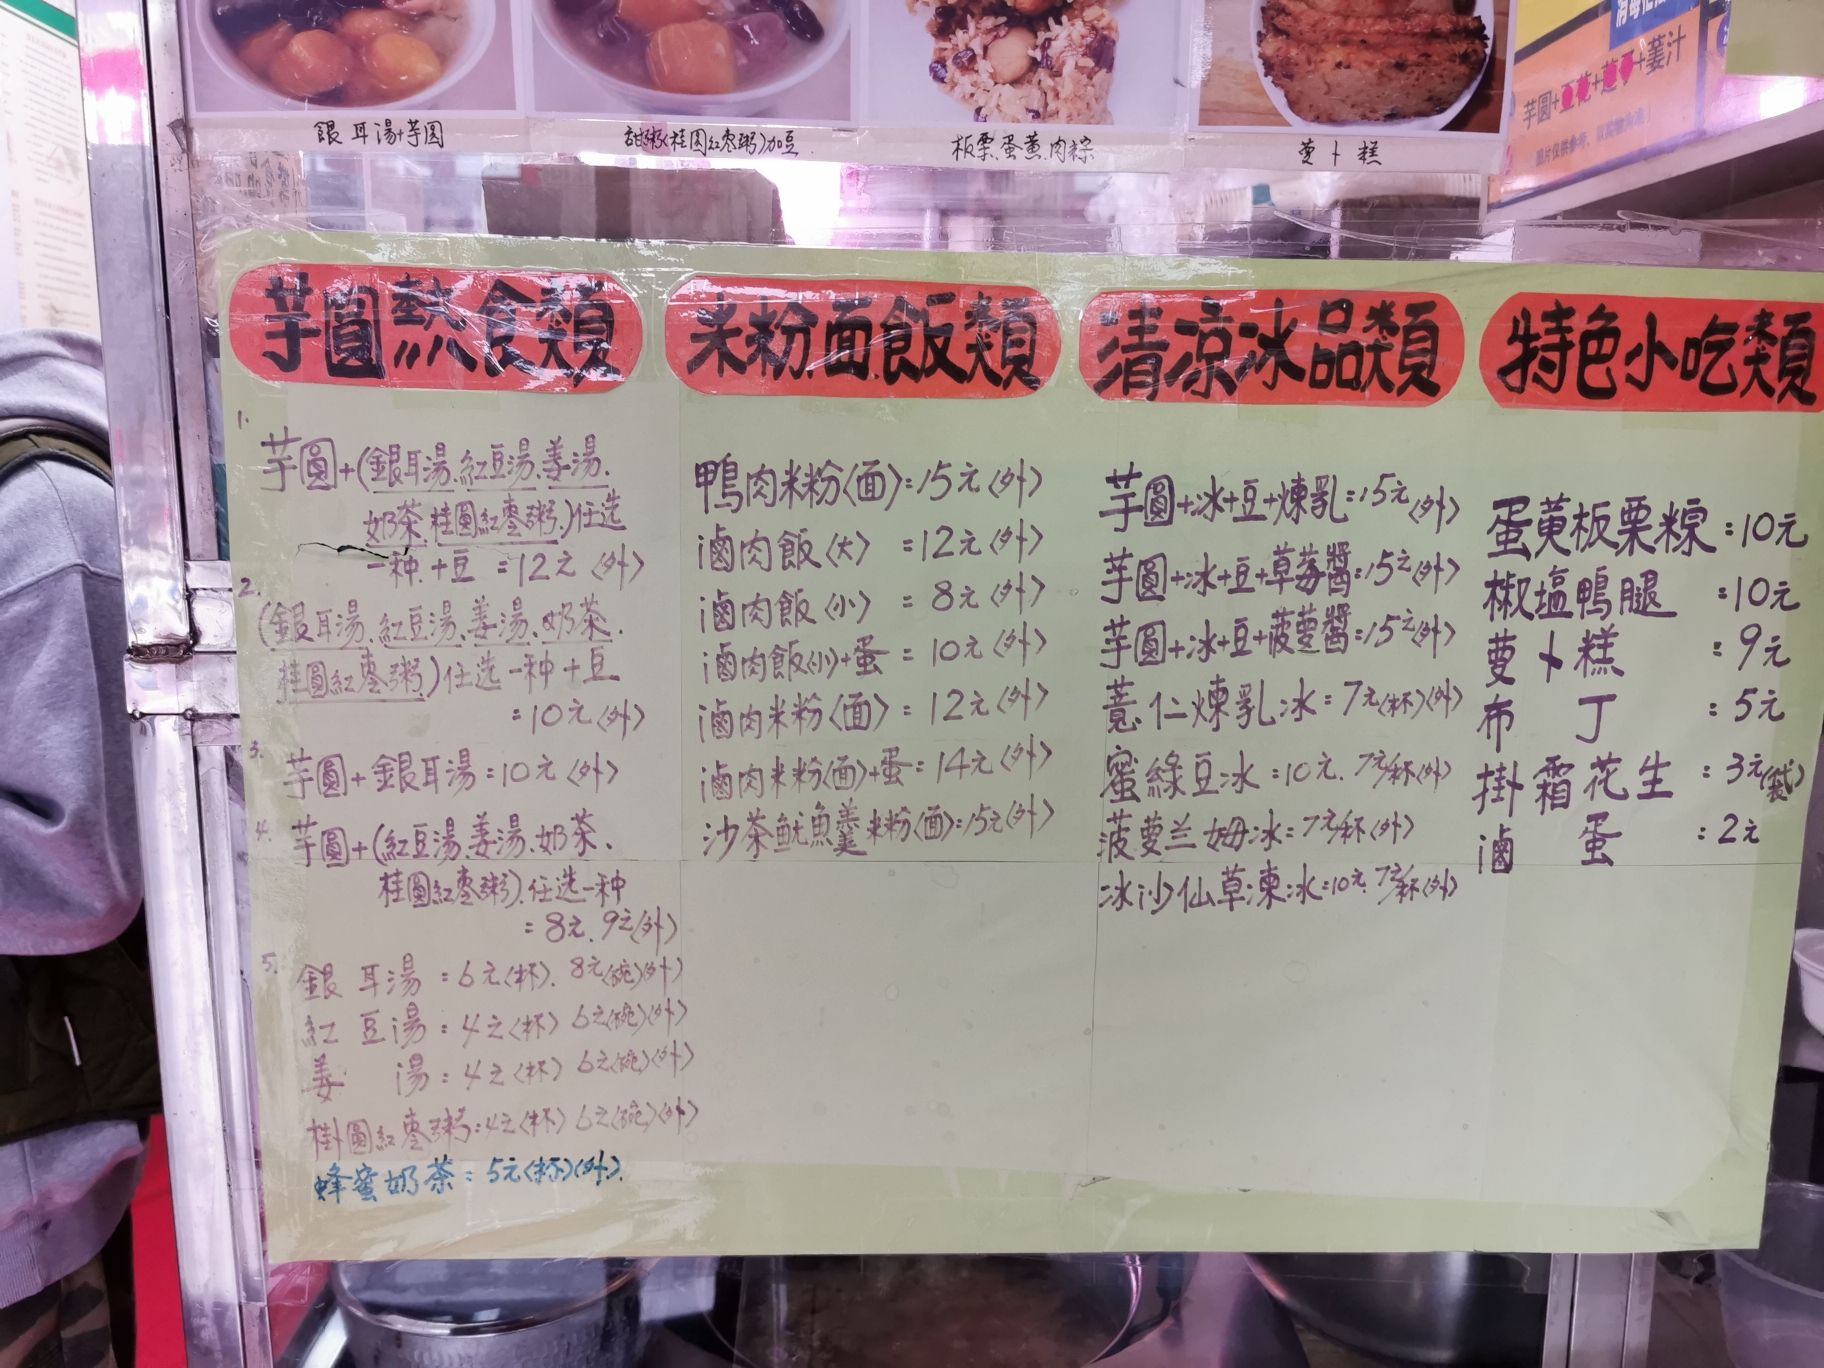 銀耳湯+芋圓
甜粥(桂圓紅枣粥)加豆
板栗蛋黄肉粽
萝卜糕
芋圆+豆花+莲子+姜汁
芋圓熱食類
1.
芋圓+(銀耳湯.紅豆湯.姜湯.
奶茶.桂圓紅枣粥.)任选
一种.+豆 =12元(外)
2.
(銀耳湯.紅豆湯.姜湯.奶茶.
桂圓紅枣粥)任选一种+豆
=10元(外)
3.
芋圓+銀耳湯=10元(外)
4.
芋圓+(紅豆湯.姜湯.奶茶.
桂圓紅枣粥).任选一种
=8元.9元(外)
5.
銀耳湯:6元(杯).8元(碗)(外)
紅豆湯:4元(杯) 6元(碗)(外)
姜 湯:4元(杯) 6元(碗)(外)
掛圓紅枣粥:4元(杯) 6元(碗)(外)
蜂蜜奶茶:5元(杯)(外).
米粉.面.飯類
鴨肉米粉(面)=15元(外)
滷肉飯(大) =12元(外)
滷肉飯(小) =8元(外)
滷肉飯(小)+蛋=10元(外)
滷肉米粉(面)=12元(外)
滷肉米粉(面)+蛋=14元(外)
沙茶魷魚羹米粉(面)=15元(外)
清凉冰品類
芋圓+冰+豆+煉乳=15元(外)
芋圓+冰+豆+草莓醬=15元(外)
芋圓+冰+豆+菠萝醬=15元(外)
薏仁煉乳冰=7元(杯)(外)
蜜綠豆冰:10元.7元/杯(外)
菠萝兰姆冰=7元/杯(外)
冰沙仙草凍冰=10元.7元/杯(外)
特色小吃類
蛋黄板栗粽:10元
椒塩鴨腿 :10元
萝卜糕 :9元
布丁 :5元
掛霜花生 :3元(袋)
滷蛋 :2元